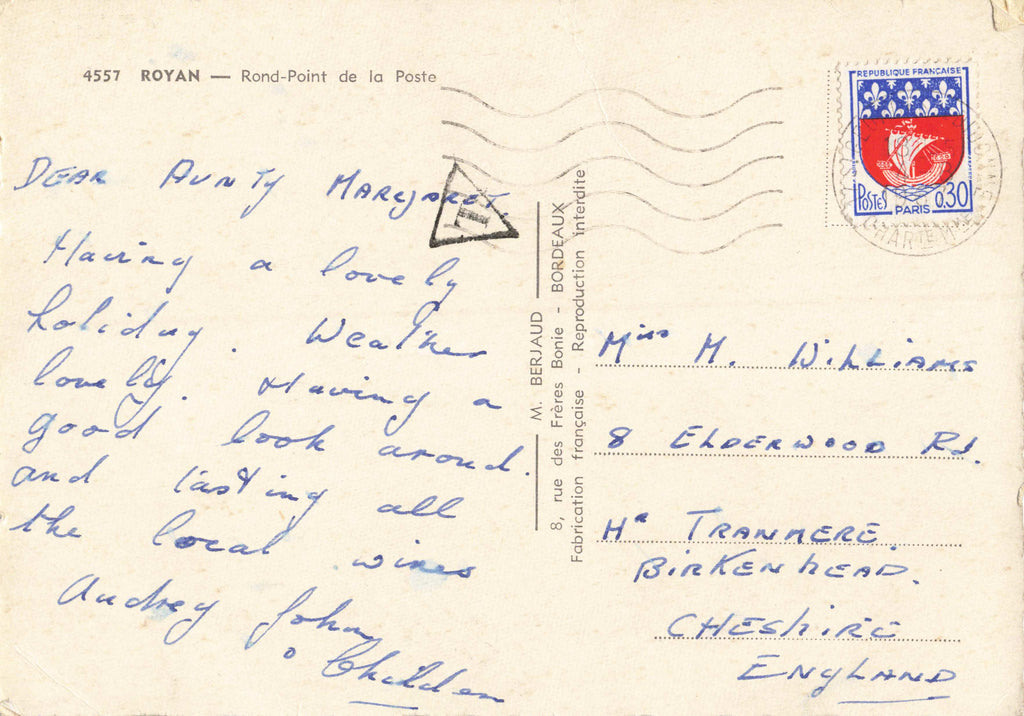 4557 ROYAN — Rond-Point de la Poste
REPUBLIQUE FRANÇAISE
POSTES
0.30
PARIS
T
DEAR AUNTY MARGARET,
Having a lovely
holiday. Weather
lovely. Having a
good look aroud.
and tasting all
the local wines
Audrey John
& Children
M. BERJAUD
8, rue des Frères Bonie - BORDEAUX
Fabrication française - Reproduction interdite
Miss M. WILLIAMS
8 ELDERWOOD Rd.
Hr TRANMERE.
BIRKENHEAD.
CHESHIRE
ENGLAND